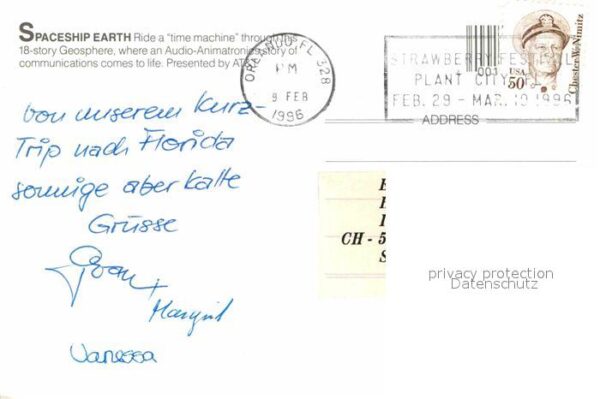 SPACESHIP EARTH Ride a "time machine" through this
18-story Geosphere, where an Audio-Animatronics story of
communications comes to life. Presented by AT
ORLANDO, FL 328
PM
9 FEB
1996
STRAWBERRY FESTIVAL
PLANT CITY, FL
FEB. 29 - MAR. 10 1996
001
USA
50
Chester W. Nimitz
ADDRESS
von unserem Kurz-
Trip nach Florida
sonnige aber kalte
Grüsse
+
Margrit
Vanessa
CH - 5
S
privacy protection
Datenschutz